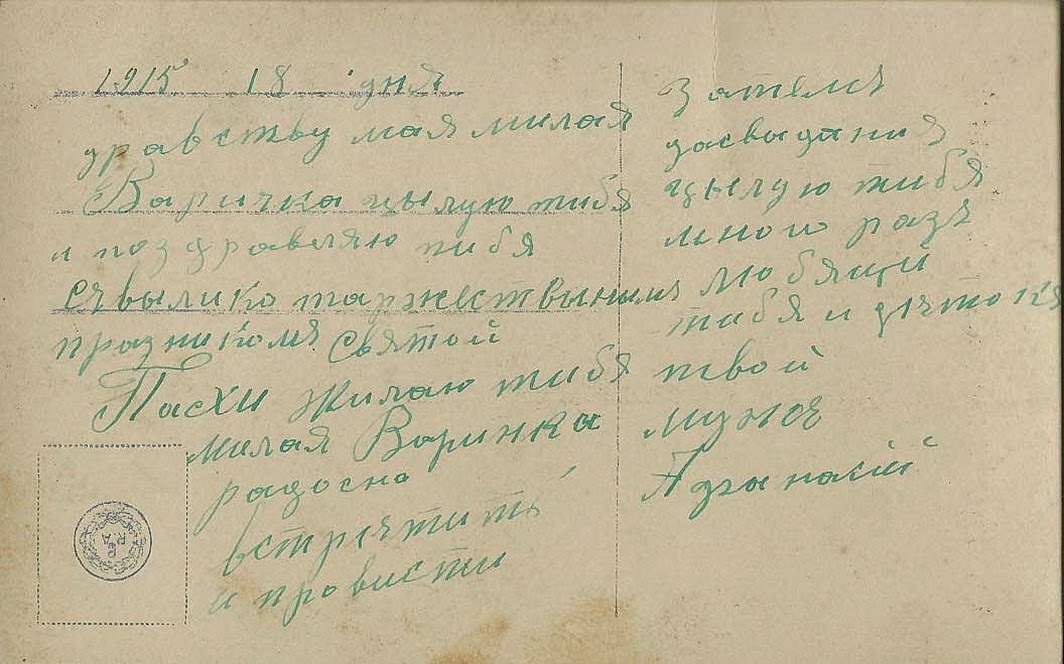 1915 18 дня
здравству мая милая
Варичка цылую тибя
и поздравляю тибя
съвылико таржествыным
празникомъ святой
Пасхи жилаю тибя
милая Варинка
радосно
встрѣтить
и провисти
Затемъ
досвидания
цылую тибя
много разъ
любящи
тибя и дѣтокъ
твой
мужъ